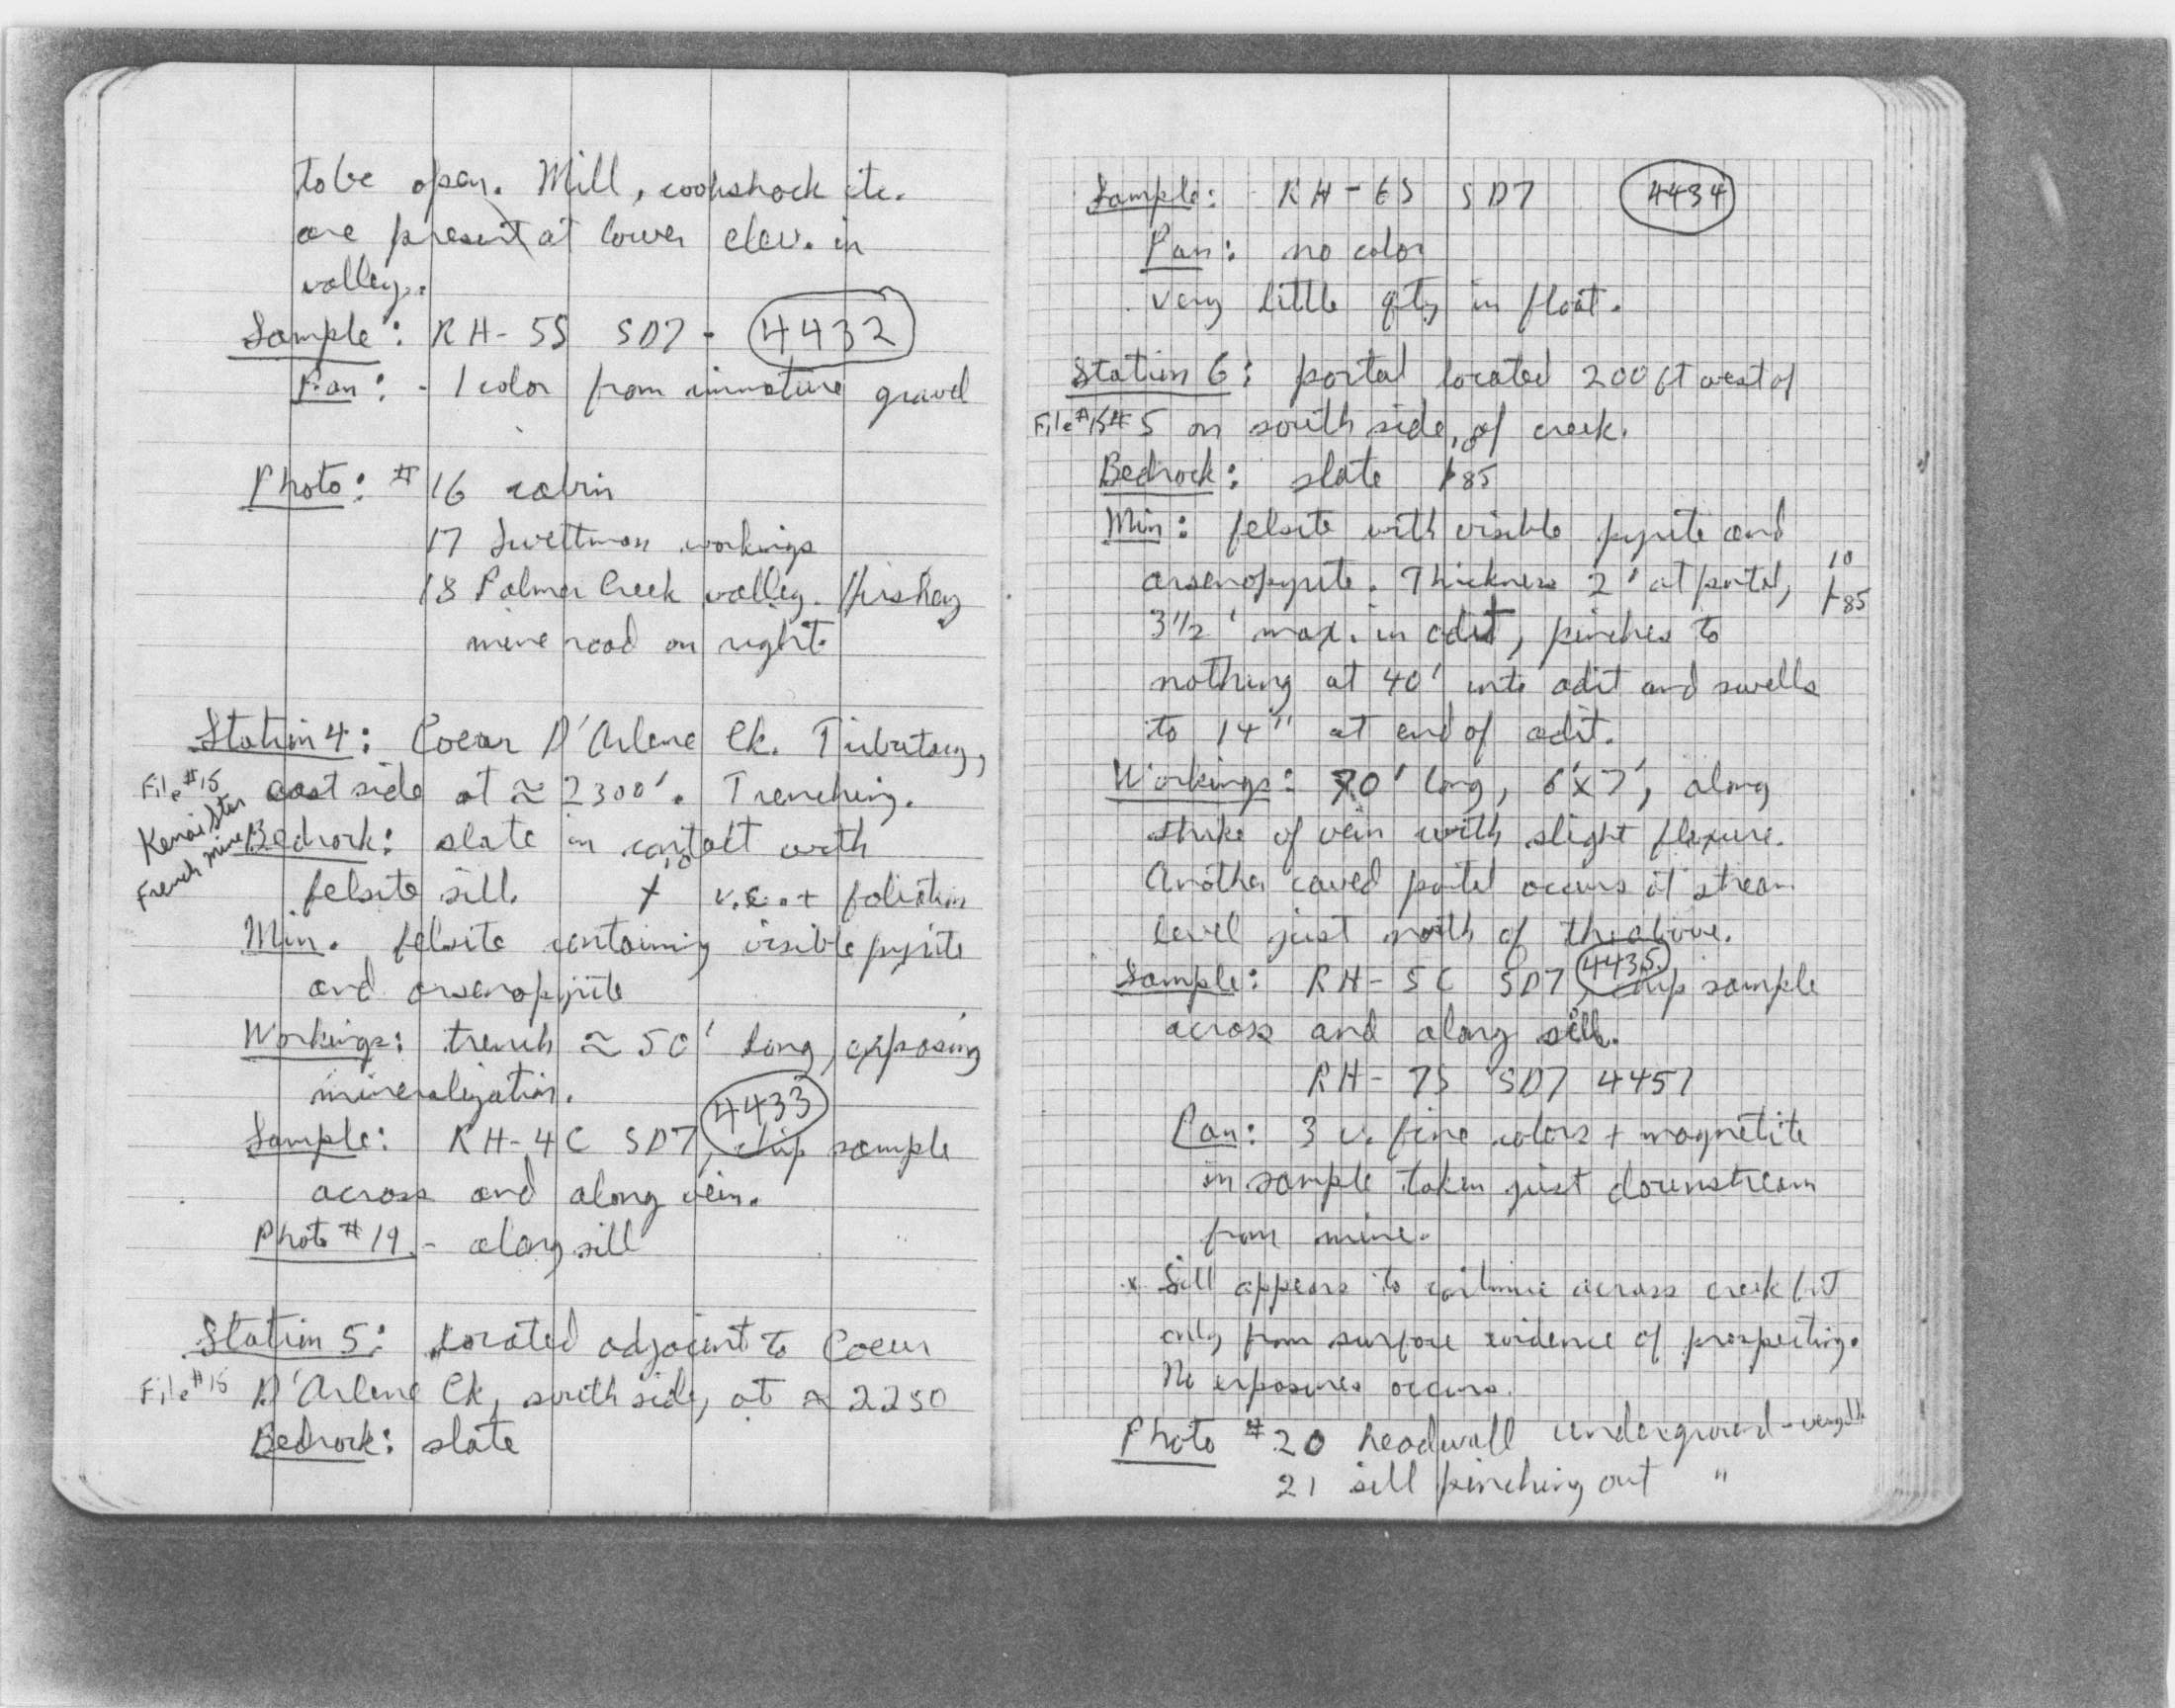 to be open. Mill, cookshack etc.
are present at lower elev. in
valley.
Sample: RH-5S SD7 - 4432
Pan: - 1 color from immature gravel
Photo: # 16 cabin
17 Swettman workings
18 Palmer Creek valley. Hirshey
mine road on right.
Station 4: Coeur D'Arlene Ck. Tributary,
File #15 east side at ≈ 2300'. Trenching.
Kenai Star
French mine
Bedrock: slate in contact with
felsite sill. foliation
Min. felsite containing visible pyrite
and arsenopyrite
Workings: trench ≈ 50' long, exposing
mineralization.
Sample: RH-4C SD7, 4433 chip sample
across and along vein.
Photo #19 - along sill
Station 5: Located adjacent to Coeur
File #15 D'Arlene Ck, south side, at ≈ 2250
Bedrock: slate
Sample: RH-6S SD7 4434
Pan: no color
very little qtz in float.
Station 6: portal located 200 ft west of
File #15 #5 on south side of creek.
Bedrock: slate 85
Min: felsite with visible pyrite and
arsenopyrite. Thickness 2' at portal, 10 85
3 1/2' max. in adit, pinches to
nothing at 40' into adit and swells
to 14" at end of adit.
Workings: 70' long, 6'x7', along
strike of vein with slight flexure.
Another caved portal occurs at stream
level just north of the above.
Sample: RH-5C SD7, 4435 chip sample
across and along sill.
RH-7S SD7 4457
Pan: 3 v. fine colors + magnetite
in sample taken just downstream
from mine.
* Sill appears to continue across creek but
only from surface evidence of prospecting.
No exposures occurs.
Photo #20 headwall underground -
21 sill pinching out "